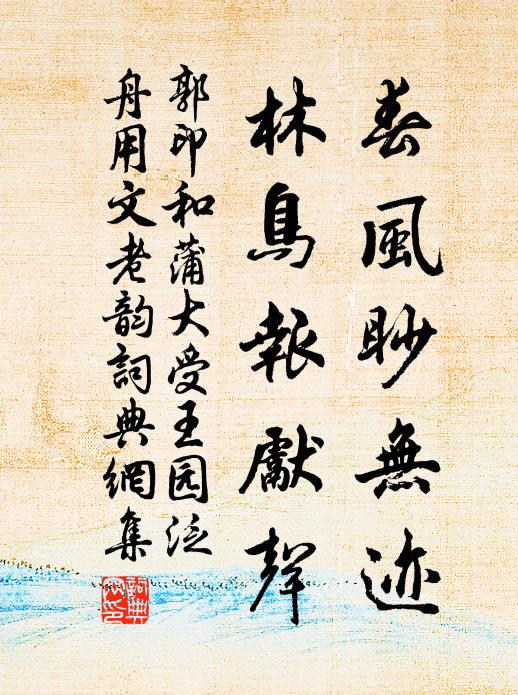 春風眇無迹
林鳥報獻聲
郭印和蒲大受王园泛
舟用文老韵詞典網集